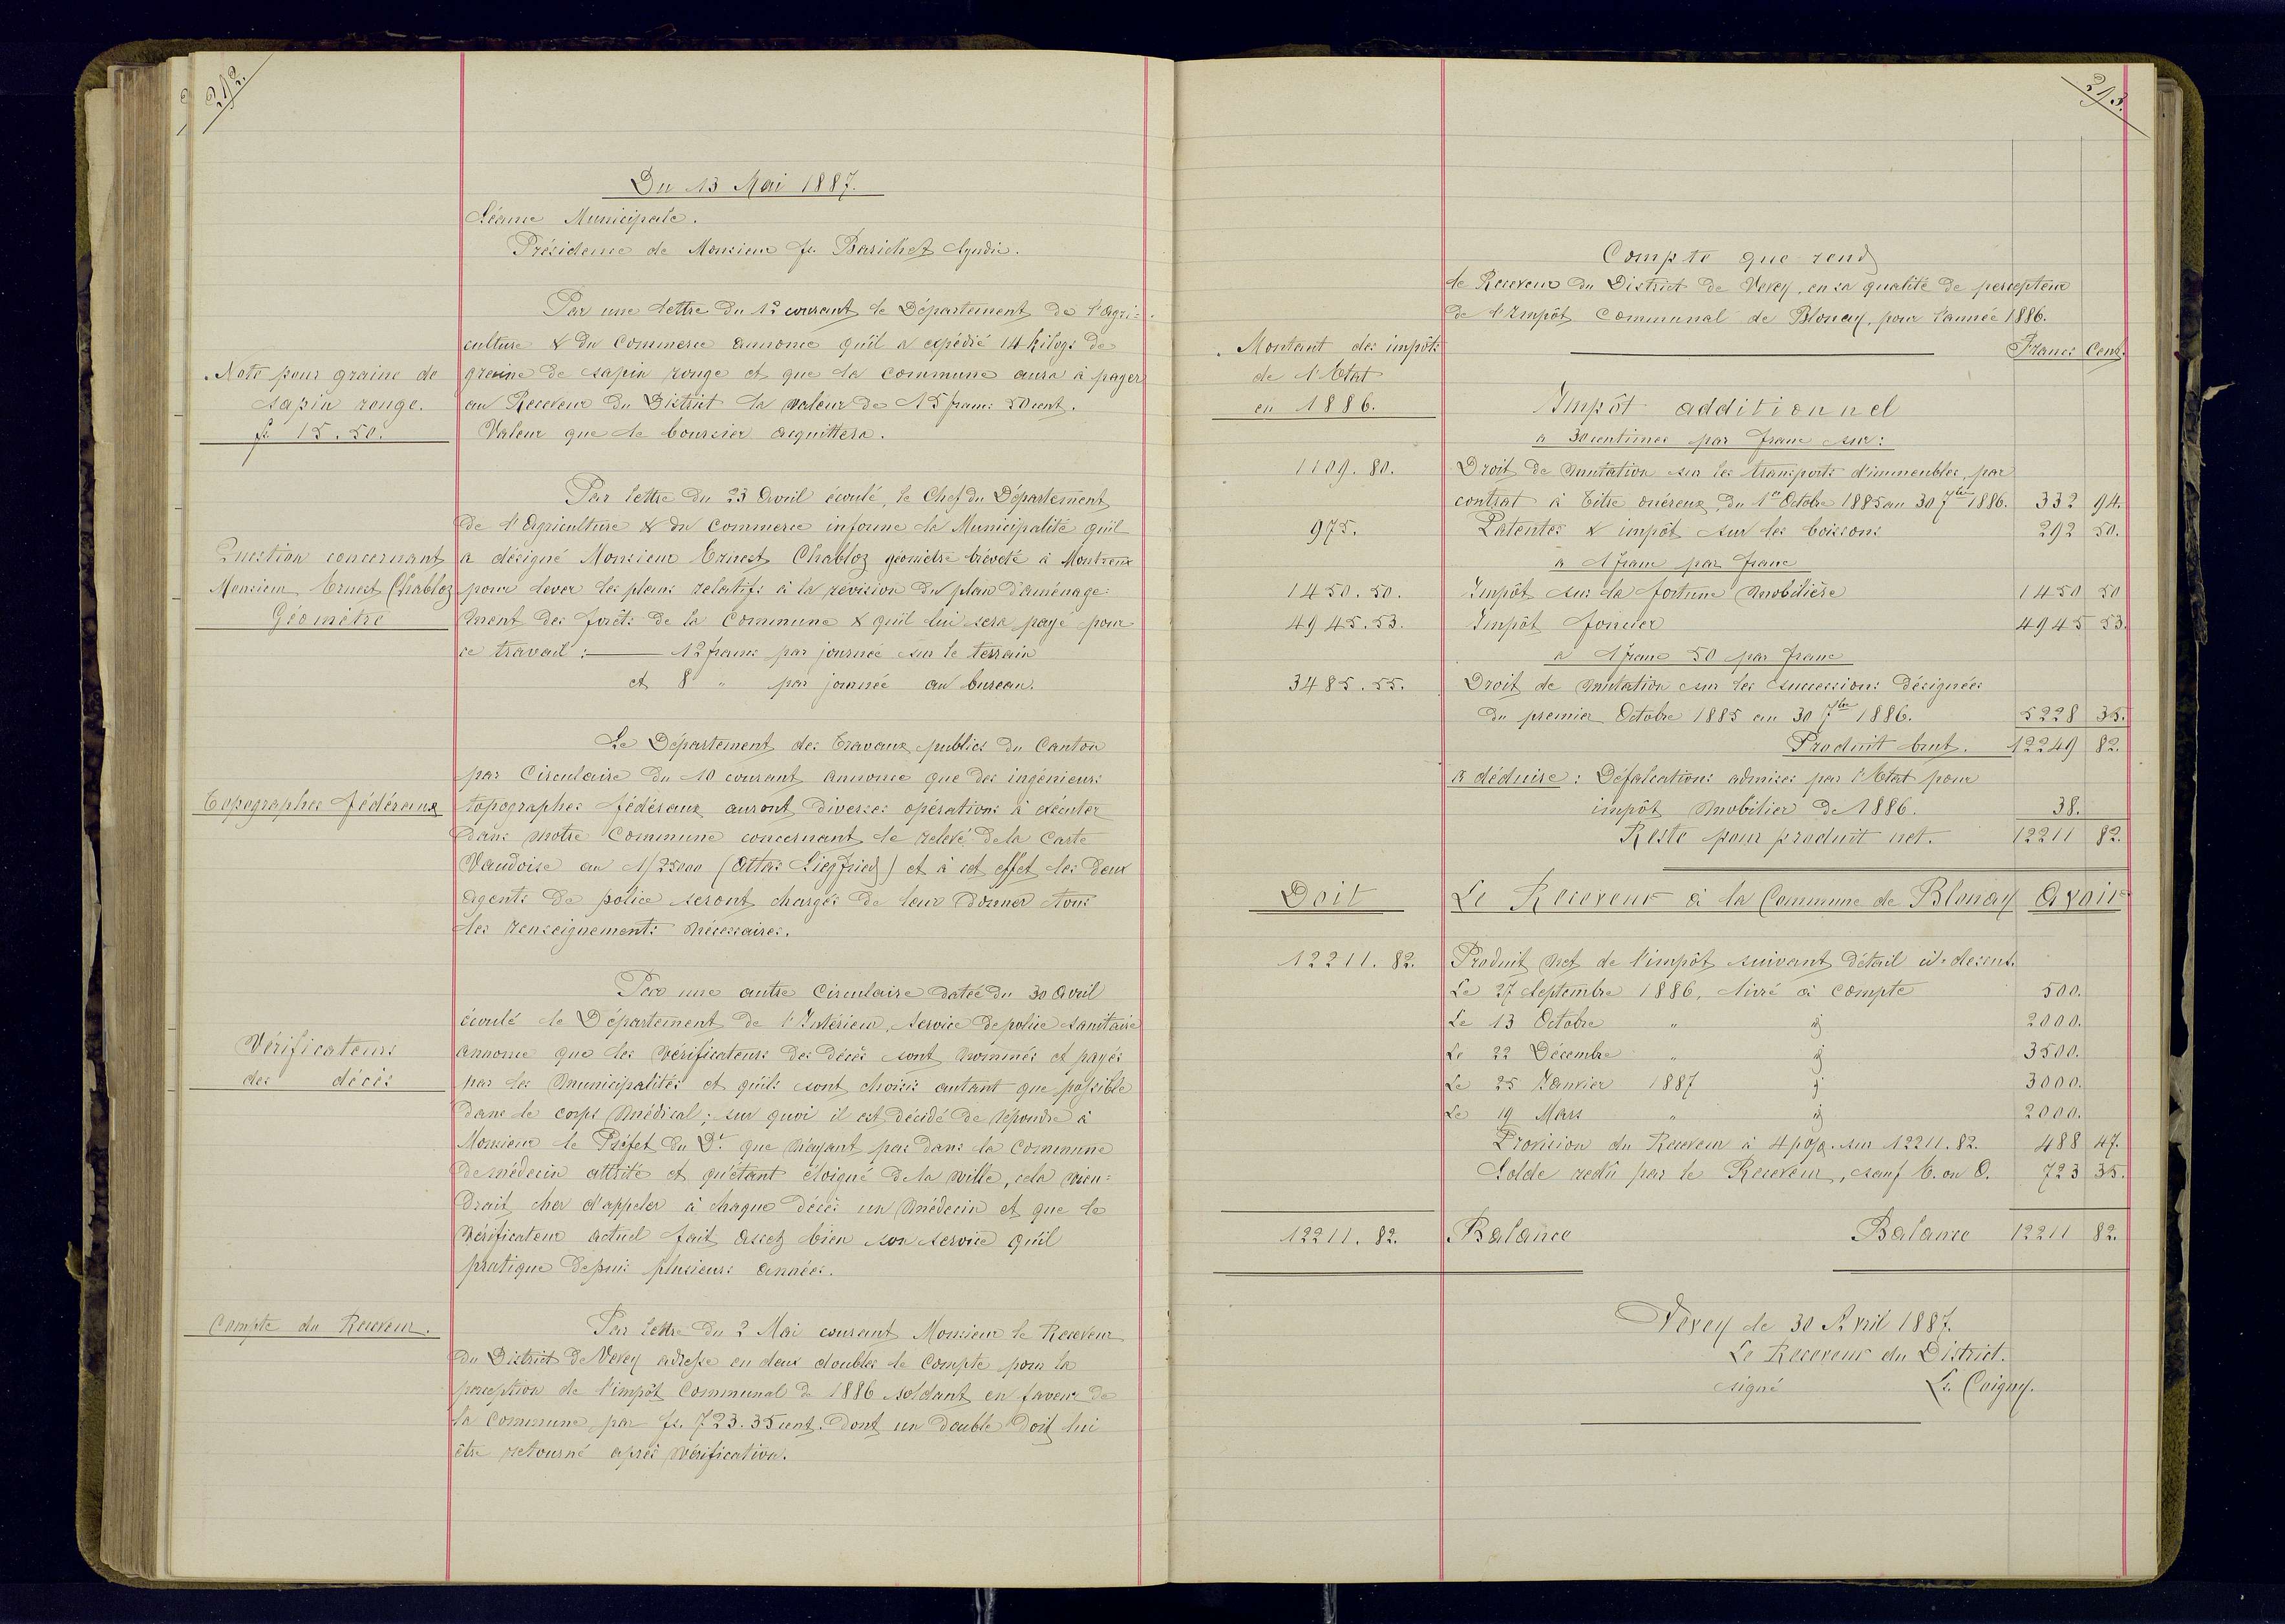 212.
Du 13 Mai 1887.
Séance Municipale.
Présidence de Monsieur fs. Bonjour Syndic.
Par une lettre du 12 courant le Département de l'Agri=
culture & du Commerce annonce qu'il a expédié 14 kilogs de
Note pour graine de
sapin rouge.
fr. 15.50.
graine de sapin rouge et que la commune aura à payer
au Receveur du District la valeur de 15 francs 50 cent.
Valeur que le boursier acquittera.
Par lettre du 23 Avril écoulé, le Chef du Département
de l'Agriculture & du Commerce informe la Municipalité qu'il
Question concernant
Monsieur Ernest Chabloz
Géomètre
a désigné Monsieur Ernest Chabloz géomètre brêveté à Montreux
pour lever les plans relatifs à la révision du plan d'aménage=
ment des forêts de la Commune & qu'il lui sera payé pour
ce travail : 12 francs par journée sur le terrain
et 8 " par journée au bureau.
Le Département des Travaux publics du Canton
par Circulaire du 10 courant annonce que des ingénieurs
Topographes fédéraux
topographes fédéraux auront diverses opérations à exécuter
dans notre Commune concernant le relevé de la Carte
Vaudoise au 1/25000 (Atlas Siegfried) et à cet effet les deux
agents de police seront chargés de leur donner tous
les renseignements nécessaires.
Par une autre Circulaire datée du 30 Avril
écoulé le Département de l'Intérieur, Service de police sanitaire
Vérificateurs
des décès
annonce que les vérificateurs des décès sont nommés et payés
par les Municipalités et qu'ils sont choisis autant que possible
dans le corps médical ; sur quoi il est décidé de répondre à
Monsieur le Préfet du Dt. que n'ayant pas dans la Commune
de médecin attitré et qu'étant éloigné de la ville, cela vien=
drait cher d'appeler à chaque décès un médecin et que le
vérificateur actuel fait assez bien son service qu'il
pratique depuis plusieurs années.
Compte du Receveur.
Par lettre du 2 Mai courant Monsieur le Receveur
du District de Vevey adresse en deux doubles le Compte pour la
perception de l'impôt Communal de 1886 soldant en faveur de
la Commune par fr. 723.35 cent. dont un double doit lui
être retourné après vérification.
213.
Compte que rend
le Receveur du District de Vevey, en sa qualité de percepteur
de l'Impôt Communal de Blonay, pour l'année 1886.
Montant des impôts
de l'Etat
en 1886.
Francs Cent.
Impôt additionnel
à 30 centimes par franc sur :
1109.80. Droit de mutation sur les transports d'immeubles, par
contrat à titre onéreux, du 1er Octobre 1885 au 30 7bre 1886. 332 94.
975. Patentes & impôt sur les boissons 292 50.
à 1 franc par franc
1450.50. Impôt sur la fortune mobilière 1450 50
4945.53. Impôt foncier 4945 53.
à 1 franc 50 par franc
3485.55. Droit de mutation sur les successions désignées
du premier Octobre 1885 au 30 7bre 1886. 5228 35.
Produit brut. 12249 82.
à déduire : Défalcations admises par l'Etat pour
impôt mobilier de 1886. 38.
Reste pour produit net. 12211 82.
Doit Le Receveur à la Commune de Blonay Avoir
12211.82. Produit net de l'impôt suivant détail ci-dessus.
Le 27 Septembre 1886, livré à compte 500.
Le 13 Octobre " ij 2000.
Le 22 Décembre " ij 3500.
Le 25 Janvier 1887 ij 3000.
Le 19 Mars " ij 2000.
Provision du Receveur à 4 p% sur 12211.82. 488 47.
Solde redû par le Receveur, sauf E. ou O. 723 35.
12211.82. Balance Balance 12211 82.
Vevey le 30 Avril 1887.
Le Receveur du District.
signé Ls. Coigny.